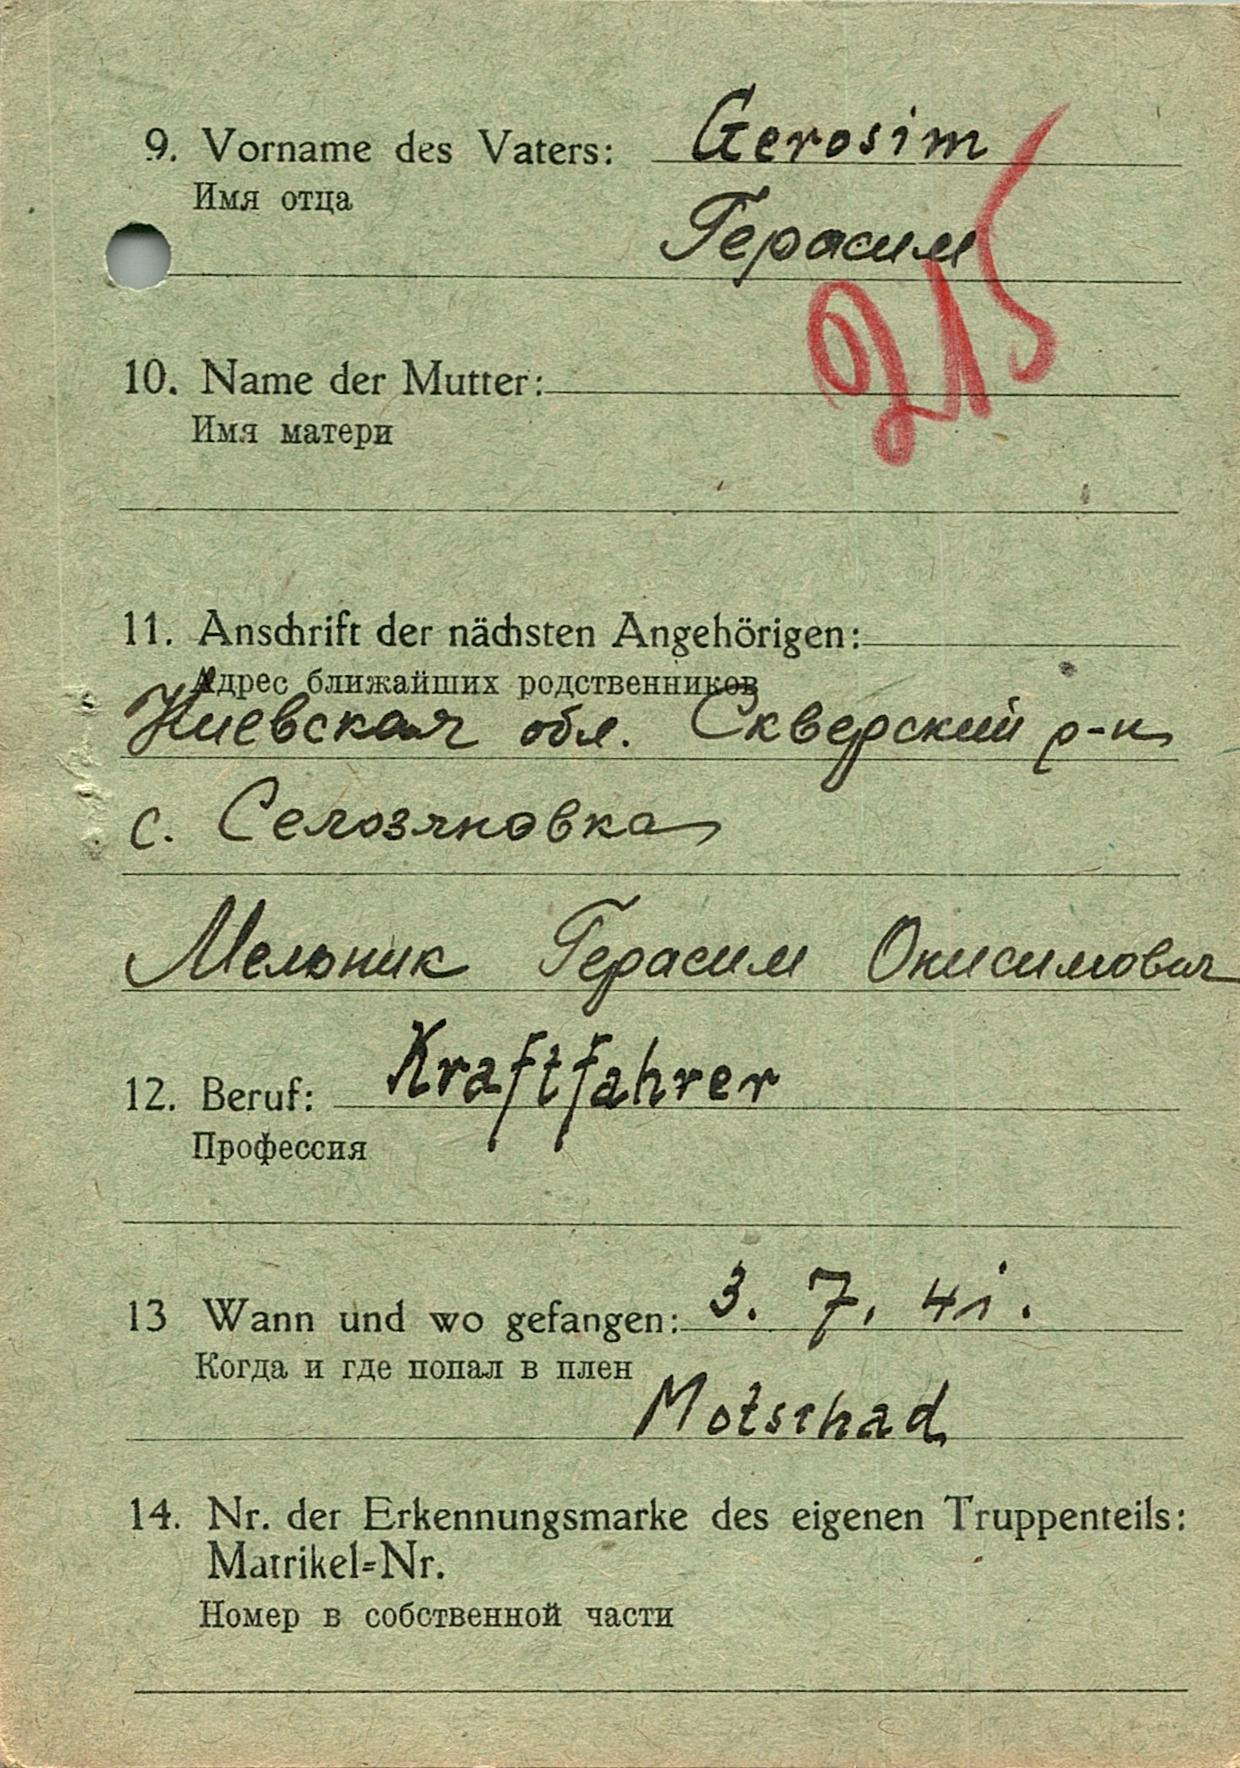 9. Vorname des Vaters: Gerosim
Имя отца
Герасим
215
10. Name der Mutter:
Имя матери
11. Anschrift der nächsten Angehörigen:
Адрес ближайших родственников
Киевская обл. Скверский р-н
с. Селозяновка
Мельник Герасим Онисимович
12. Beruf: Kraftfahrer
Профессия
13 Wann und wo gefangen: 3. 7. 41.
Когда и где попал в плен
Motschad
14. Nr. der Erkennungsmarke des eigenen Truppenteils:
Matrikel=Nr.
Номер в собственной части